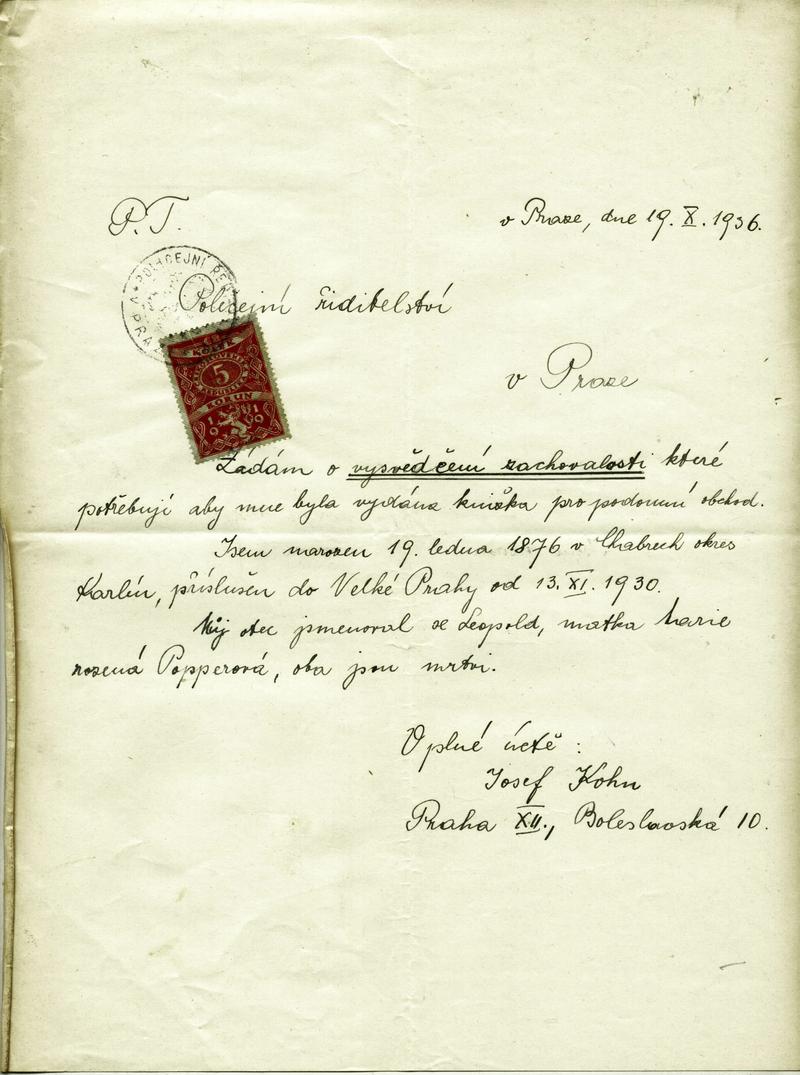 P.T.
v Praze, dne 19. X. 1936.
POLICEJNÍ ŘED
Policejní řiditelství
v Praze
KOLEK
ČESKOSLOVENSKÁ
REPUBLIKA
5
KORUN
1919
Žádám o vysvědčení zachovalosti které
potřebuji aby mne byla vydána knižka pro podomní obchod.
Jsem narozen 19. ledna 1876 v Chabrech okres
Karlín, příslušen do Velké Prahy od 13. XI. 1930.
Můj otec jmenoval se Leopold, matka Marie
rozená Popperová, oba jsou mrtvi.
V plné úctě :
Josef Kohn
Praha XII., Boleslavská 10.